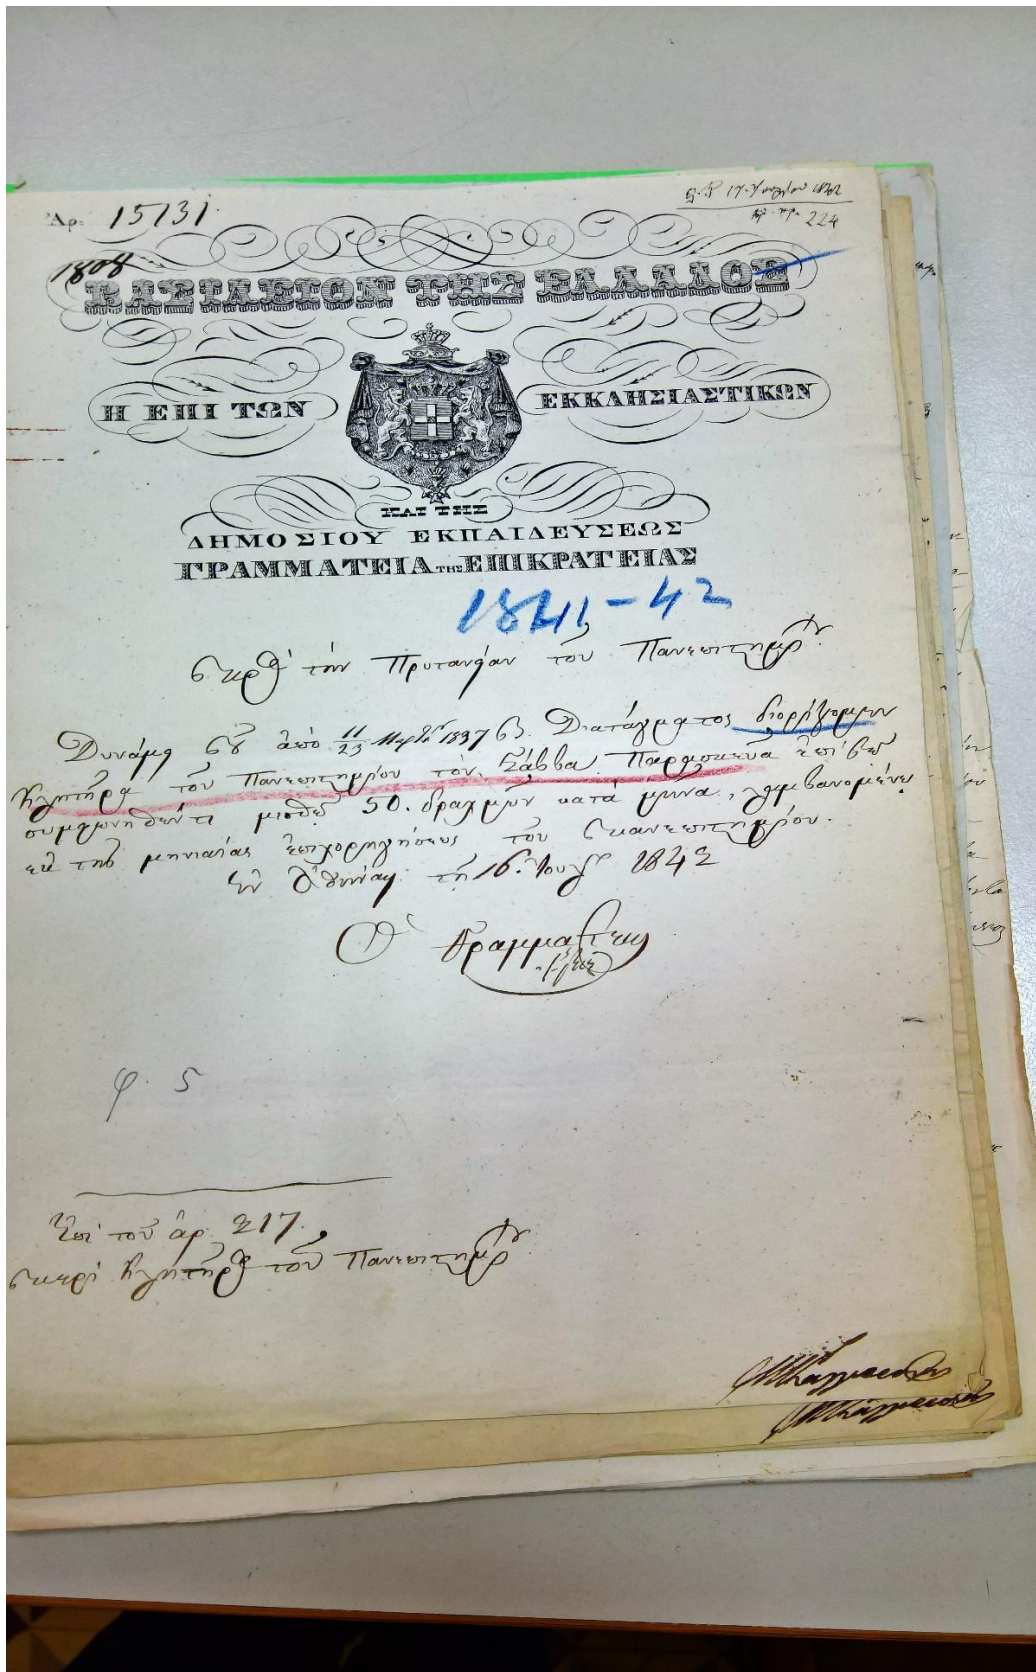 Ἀρ. 15131.
224
1808
ΒΑΣΙΛΕΙΟΝ ΤΗΣ ΕΛΛΑΔΟΣ
Η ΕΠΙ ΤΩΝ ΕΚΚΛΗΣΙΑΣΤΙΚΩΝ
ΚΑΙ ΤΗΣ
ΔΗΜΟΣΙΟΥ ΕΚΠΑΙΔΕΥΣΕΩΣ
ΓΡΑΜΜΑΤΕΙΑ ΤΗΣ ΕΠΙΚΡΑΤΕΙΑΣ
1841-42
Πρὸς τὴν Πρυτανείαν τοῦ Πανεπιστημίου
Δυνάμει τοῦ ἀπὸ 1837 Β. Διατάγματος διορίζομεν
Κλητῆρα τοῦ Πανεπιστημίου τὸν Σάββα Παρασκευᾶ ἐπὶ
συμφωνηθέντι μισθῷ 50. δραχμῶν κατὰ μῆνα, λαμβανομένῳ
ἐκ τῆς μηνιαίας ἐπιχορηγήσεως τοῦ Πανεπιστημίου.
Ἐν Ἀθήναις τῇ 16. 1842
Ὁ Γραμματεὺς
φ. 5
Ἐπὶ τοῦ ἀρ. 217.
περὶ Κλητῆρος τοῦ Πανεπιστημίου